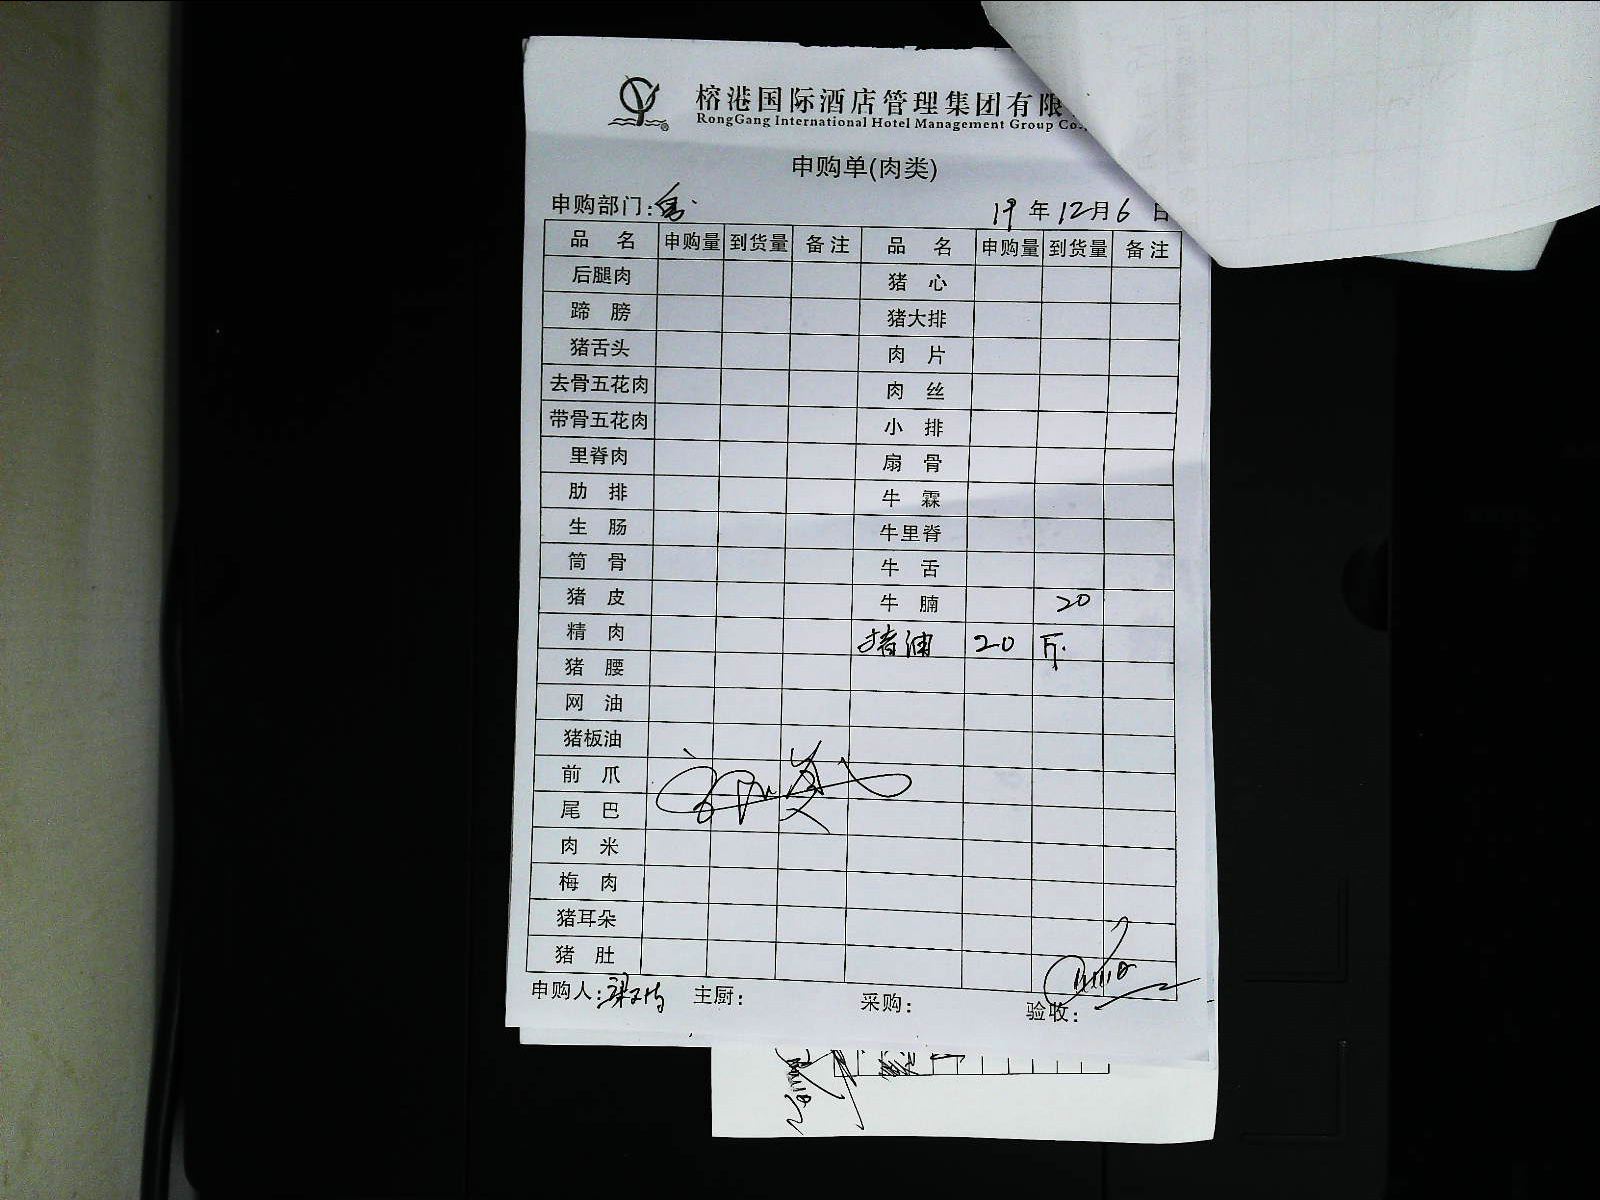 榕港国际酒店管理集团有限
RongGang International Hotel Management Group Co.,
申购单(肉类)
申购部门: 19年12月6日
品 名 申购量 到货量 备注 品 名 申购量 到货量 备注
后腿肉 猪 心
蹄 膀 猪大排
猪舌头 肉 片
去骨五花肉 肉 丝
带骨五花肉 小 排
里脊肉 扇 骨
肋 排 牛 霖
生 肠 牛里脊
筒 骨 牛 舌
猪 皮 牛 腩 20
精 肉 猪油 20 斤.
猪 腰
网 油
猪板油
前 爪
尾 巴
肉 米
梅 肉
猪耳朵
猪 肚
申购人: 主厨: 采购: 验收: